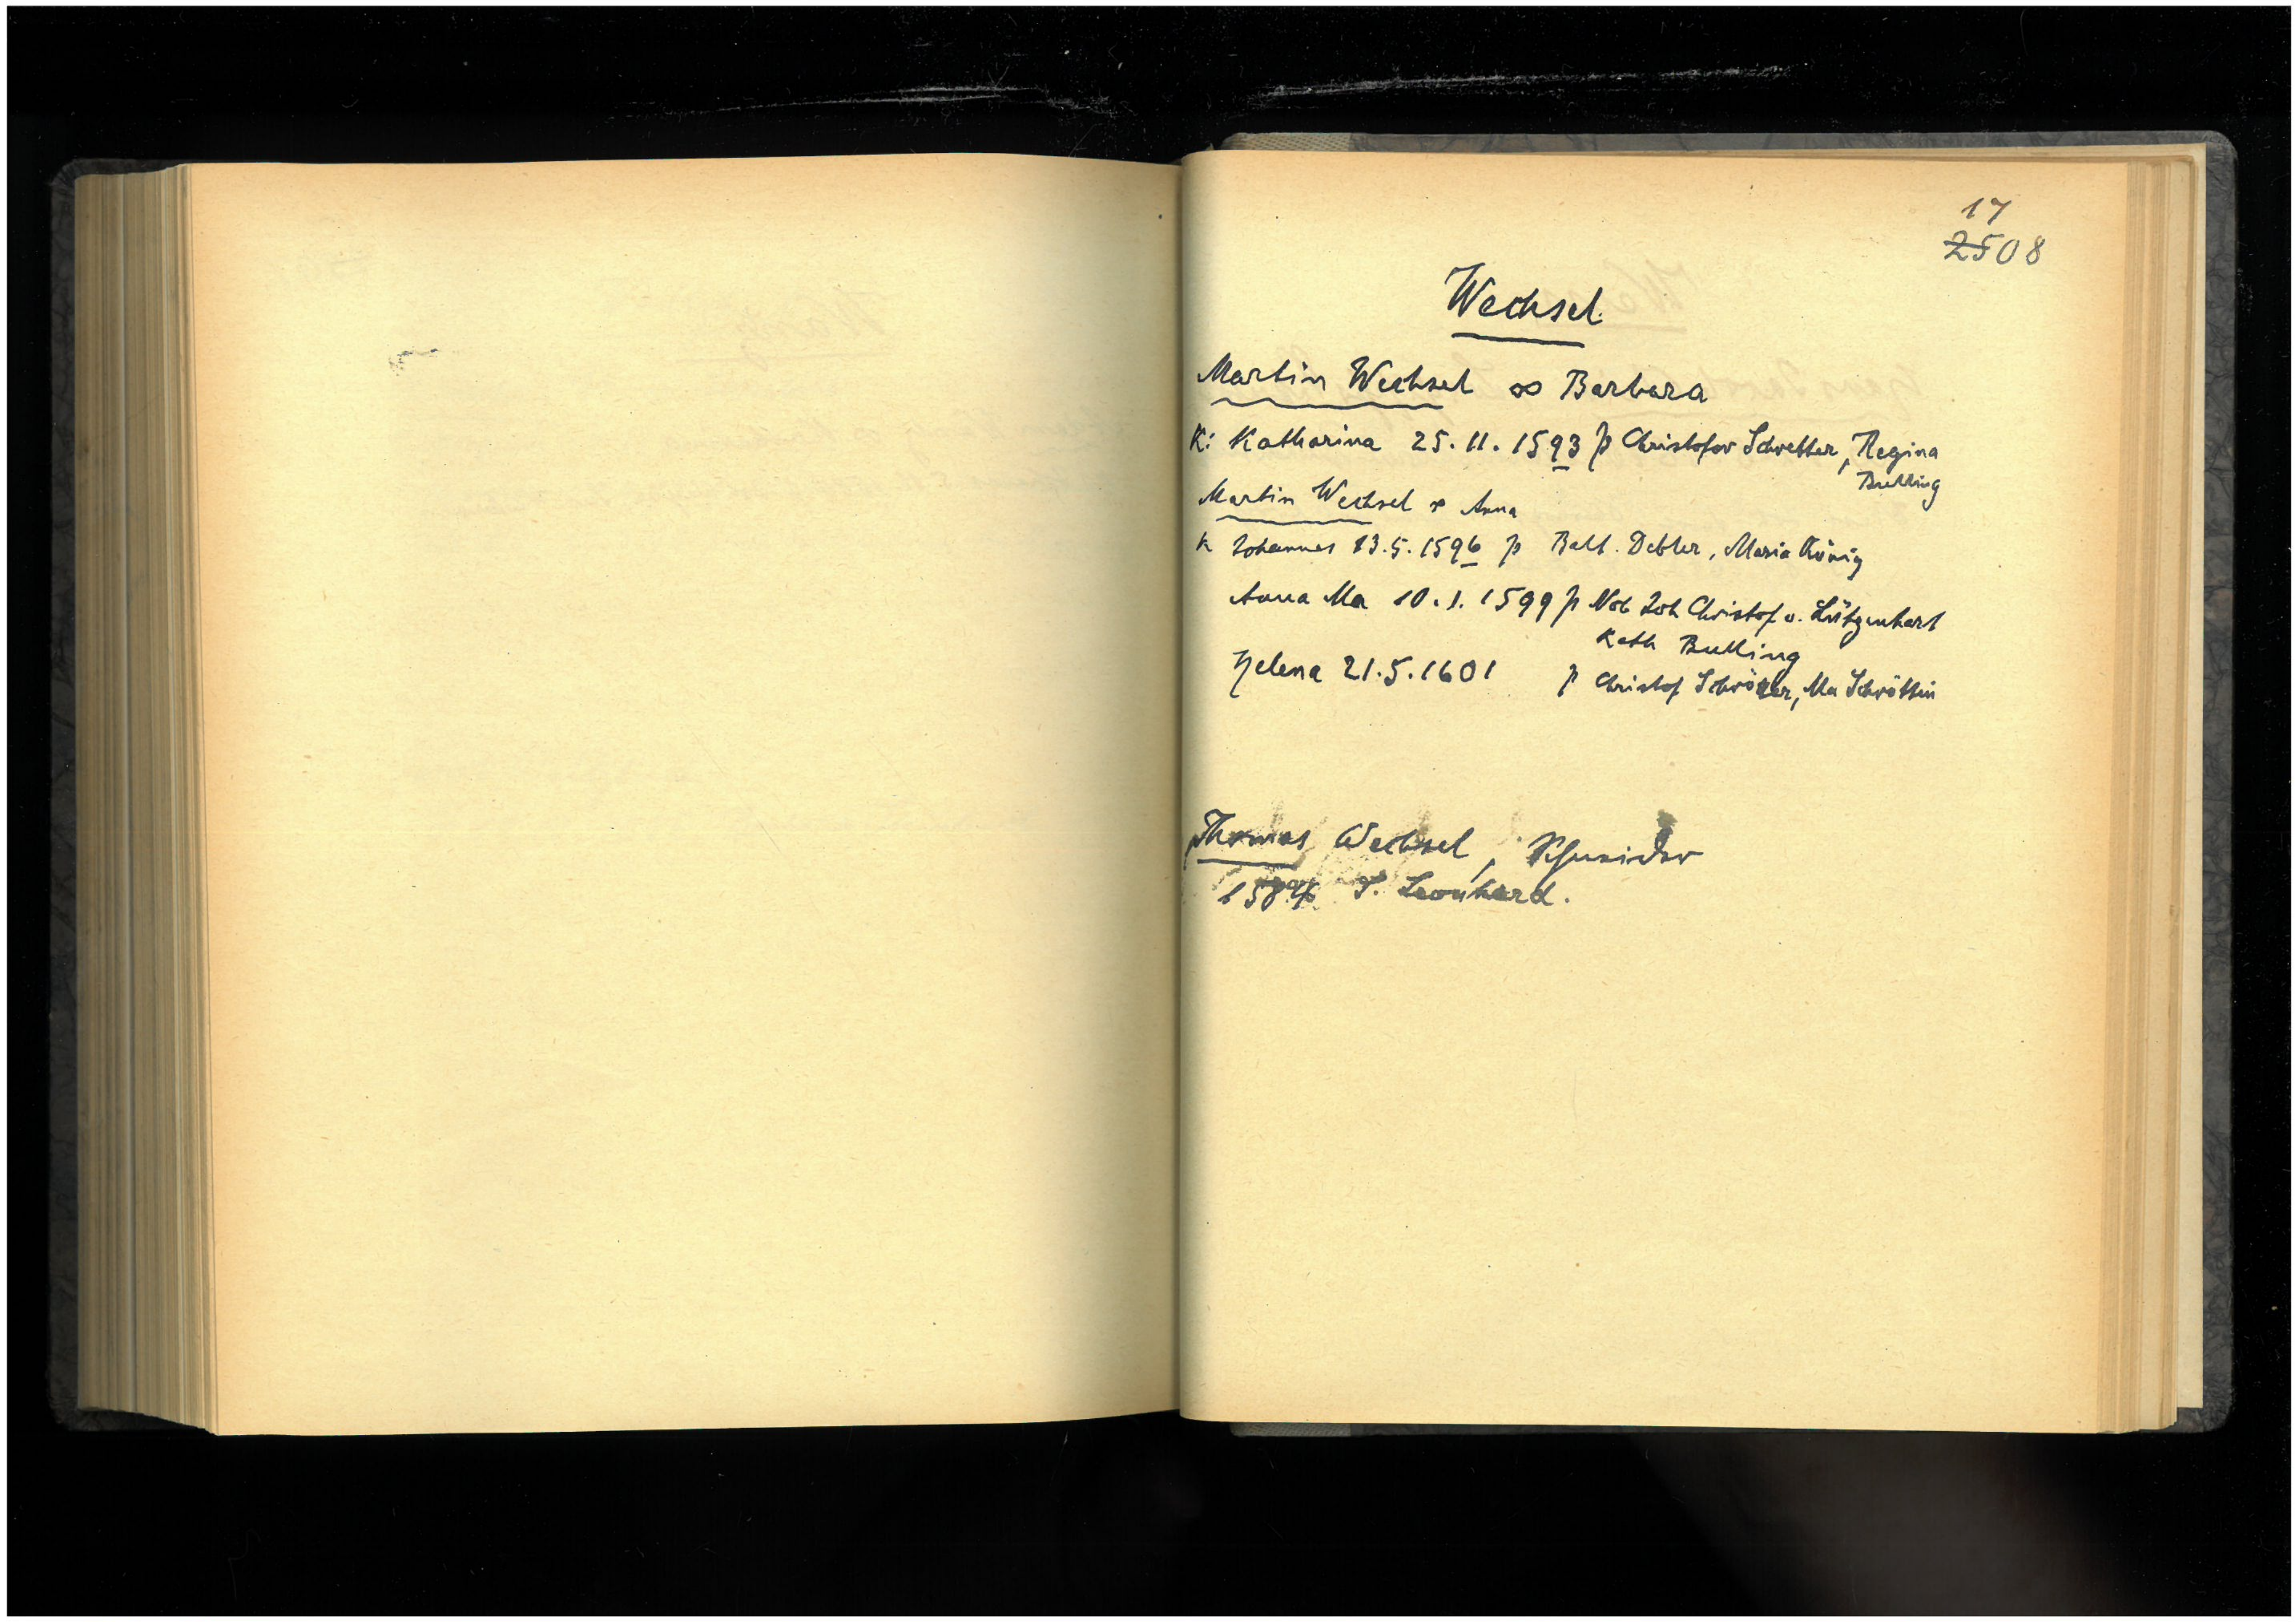 17
2508
Wechsel
Martin Wechsel ∞ Barbara
K: Katharina 25.11.1593 p Christofor Schretter, Regina
Bulling
Martin Wechsel ∞ Anna
K Johannes 13.5.1596 p Balt. Debler, Maria König
Anna Ma 10.1.1599 p Nob Joh Christof v. Lützenhart
Kath Bulling
Helena 21.5.1601 p Christof Schröter, Ma Schröttin
Thomas Wechsel, Schneider
S. Leonhard.